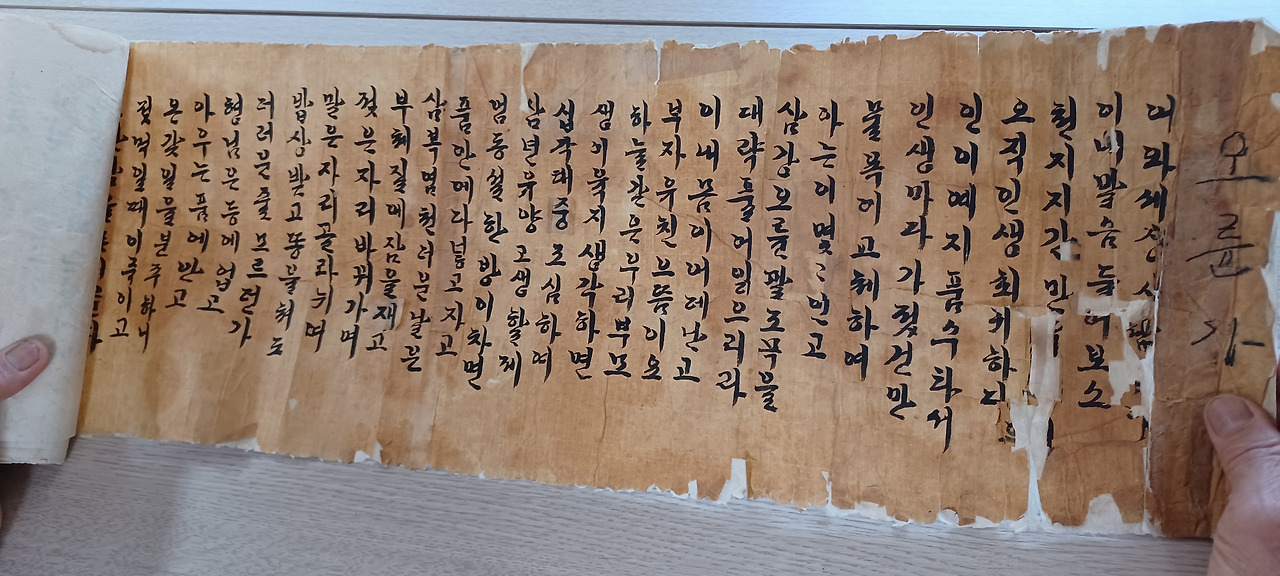 오륜가
어와 세상 사
이내 말슴 들어보소
천지지간 만
오직 인생 최귀하
인이예지 품수타서
인생마다 가젓건만
물욕이 교체하여
아는 이 몇몇인고
삼강오륜 팔조목을
대략 풀어 일으리라
이내 몸이 어데 난고
부자유친 으뜸이요
하늘 같은 우리 부모
생이육지 생각하면
십삭 태중 조심하며
삼년 유양 고생할 제
엄동설한 방이 차면
품안에다 넣고 자고
삼복염천 더운 날은
부채질에 잠을 재고
젖은 자리 바뀌가며
말은 자리 골라 뉘며
밥상 받고 똥을 쳐도
더러운 줄 모르던가
형님은 등에 업고
아우는 품에 안고
온갖 일을 분주하니
젖 먹일 때 이륵이고